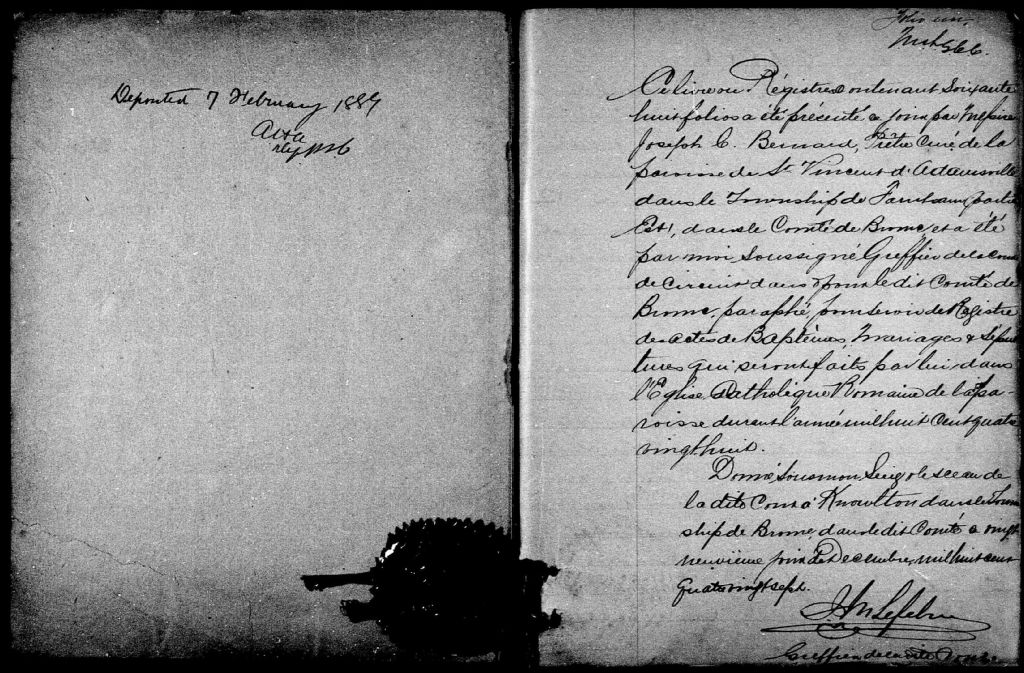 Deposited 7 February 1889
Folio un.
Ce livre ou Régistre contenant Soixante
huit folios a été présenté a jour par Messire
Joseph E. Bernard, Prêtre Curé de la
paroisse de St Vincent d'Adamsville
dans le Township de Farnham partie
Est, dans le Comté de Brome, et a été
par moi Soussigné Greffier de la Cour
de Circuit dans & pour le dit Comté de
Brome, paraphé, pour servir de Régistre
des actes de Baptêmes, Mariages & Sépul
tures qui seront faits par lui dans
l'Eglise Catholique Romaine de la pa-
roisse durant l'année mil huit Cent quatre
vingt huit.
Donné Sous mon Seing & le sceau de
la dite Cour à Knowlton dans le Town
ship de Brome, dans le dit Comté ce vingt
neuvième jour de Decembre, mil huit cent
quatre vingt sept.
Lefebvre
Greffier de la dite Cour